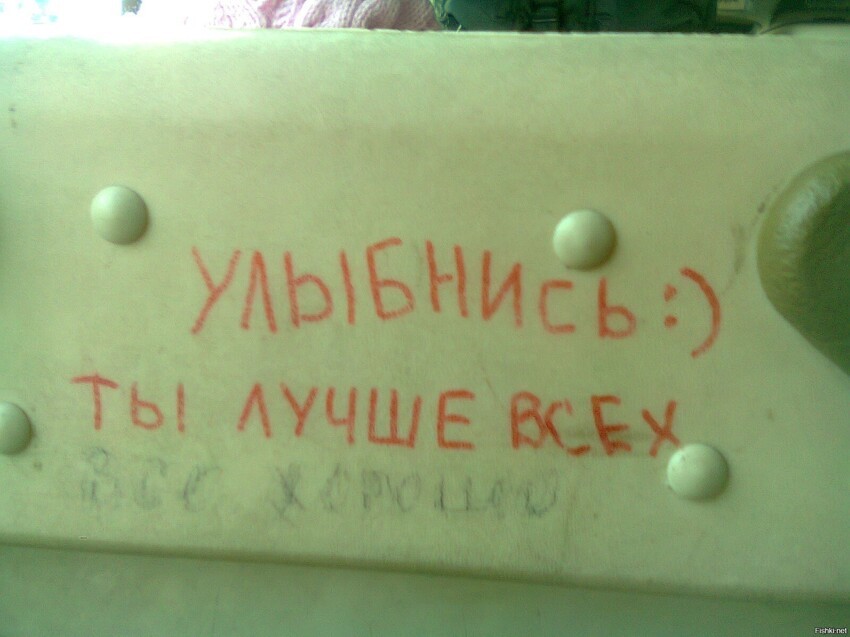 УЛЫБНИСЬ:)
ТЫ ЛУЧШЕ ВСЕХ
ВСЕ ХОРОШО
Fishki.net